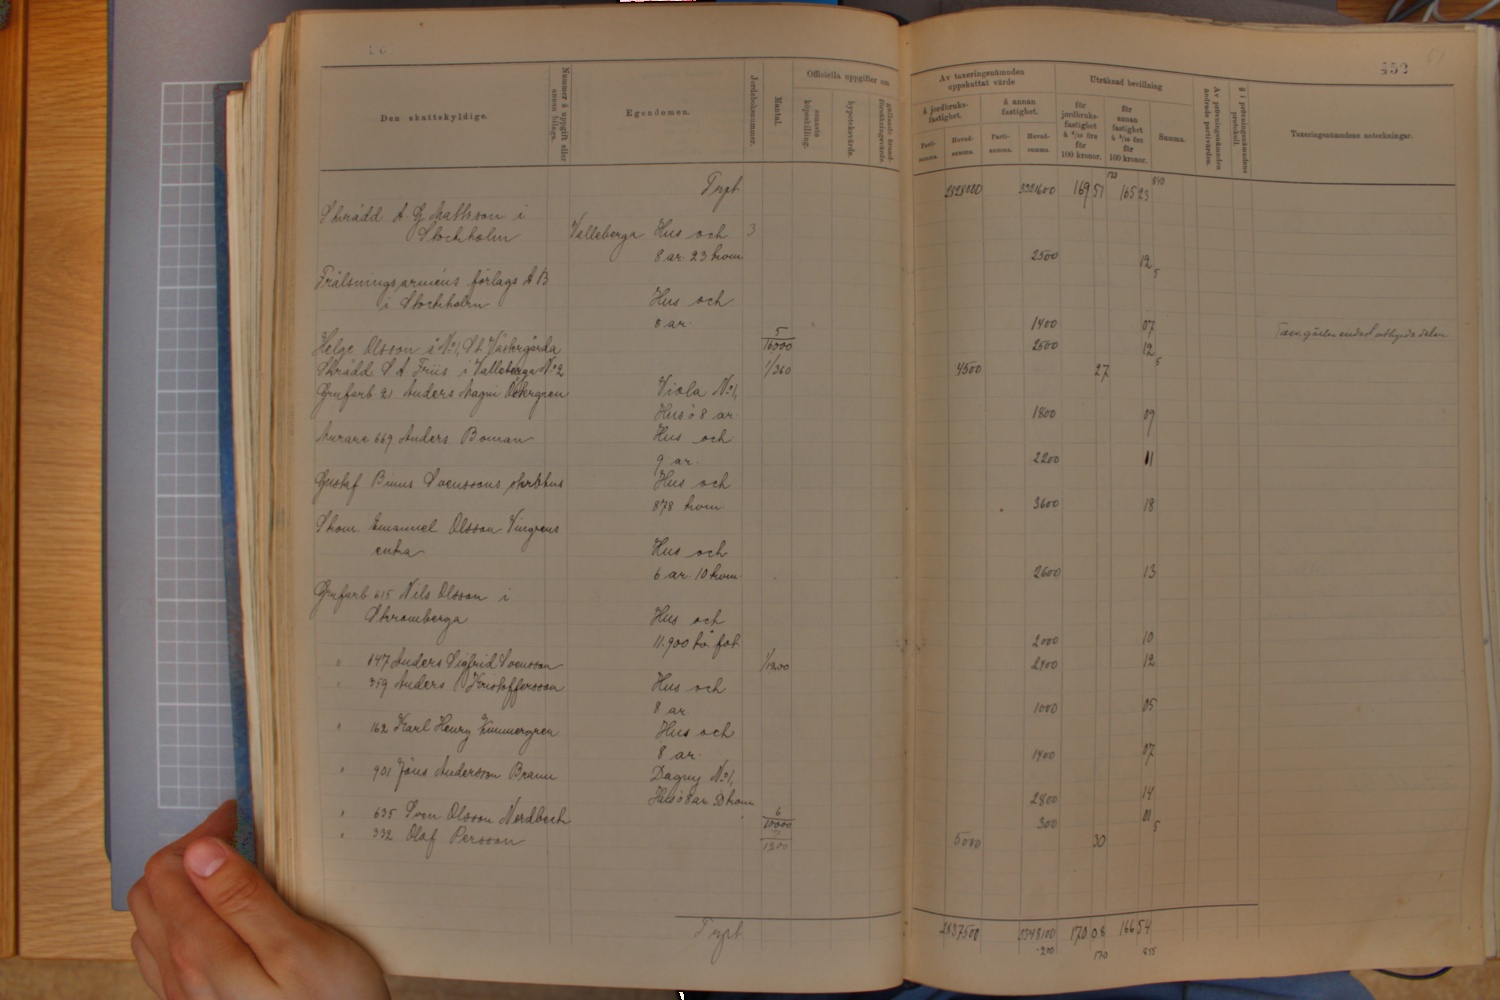 452
Den skattskyldige.
Nummer å uppgift eller annan bilaga.
Egendomen.
Jordeboksnummer.
Mantal.
Officiella uppgifter om
senaste köpeskilling.
hypoteksvärde.
gällande brandförsäkringsvärde.
Av taxeringsnämnden uppskattat värde
å jordbruksfastighet.
å annan fastighet.
Partisumma.
Huvudsumma.
Partisumma.
Huvudsumma.
Uträknad bevillning
för jordbruksfastighet å 6/10 öre för 100 kronor.
för annan fastighet å 5/10 öre för 100 kronor.
Summa.
Av prövningsnämnden ändrade partivärden.
§ i prövningsnämndens protokoll.
Taxeringsnämndens anteckningar.
Trpt 2828000 3321600 169 51 165 23
Skrädd A. G. Mattsson i
Stockholm Valleberga Hus och 3
8 ar 23 kvm 2500 12 5
Frälsningsarméns förlags A B
i Stockholm Hus och
8 ar. 1400 07
Helge Olsson i No 1, St. Västergårda 5/16000 2500 12 5
Skrädd S A Friis i Valleberga No 2 1/360 4500 27
Grufarb 21 Anders Magni Åkergren Viola No 1,
Hus o 8 ar 1800 09
Murare 669 Anders Boman Hus och
9 ar. 2200 11
Gustaf Svenssons sterbhus Hus och
878 kvm 3600 18
Skom. Emanuel Olsson Vingrens
enka Hus och
6 ar 10 kvm 2600 13
Grufarb 615 Nils Olsson i
Strömberga Hus och
11.900 kv. fot 2000 10
" 647 Anders Sigfrid Svensson 1/1200 2400 12
" 359 Anders Kristoffersson Hus och
8 ar 1000 05
" 162 Karl Henry Zimmergren Hus och
8 ar. 1400 07
" 901 Jöns Andersson Braun Dagny No 1,
Hus o 8 ar kvm 2800 14
" 635 Sven Olsson Nordbeck 6/10000 300 01 5
" 332 Olof Persson 1200 5000 30
Trpt 2837500 3348100 170 08 166 54
200 170 855